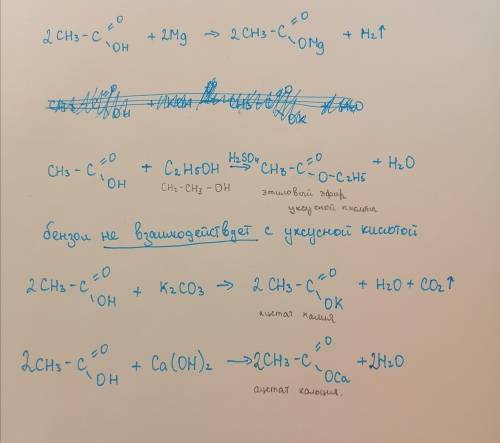 2CH₃-C=O OH + 2Mg → 2CH₃-C=O OMg + H₂↑
CH₃-C=O OH + C₂H₅OH H₂SO₄→ CH₃-C=O O-C₂H₅ + H₂O
CH₂-CH₃-OH этиловый эфир
уксусной кислоты
бензол не взаимодействует с уксусной кислотой
2CH₃-C=O OH + K₂CO₃ → 2CH₃-C=O OK + H₂O + CO₂↑
ацетат калия
2CH₃-C=O OH + Ca(OH)₂ → 2CH₃-C=O OCa + 2H₂O
ацетат кальция.